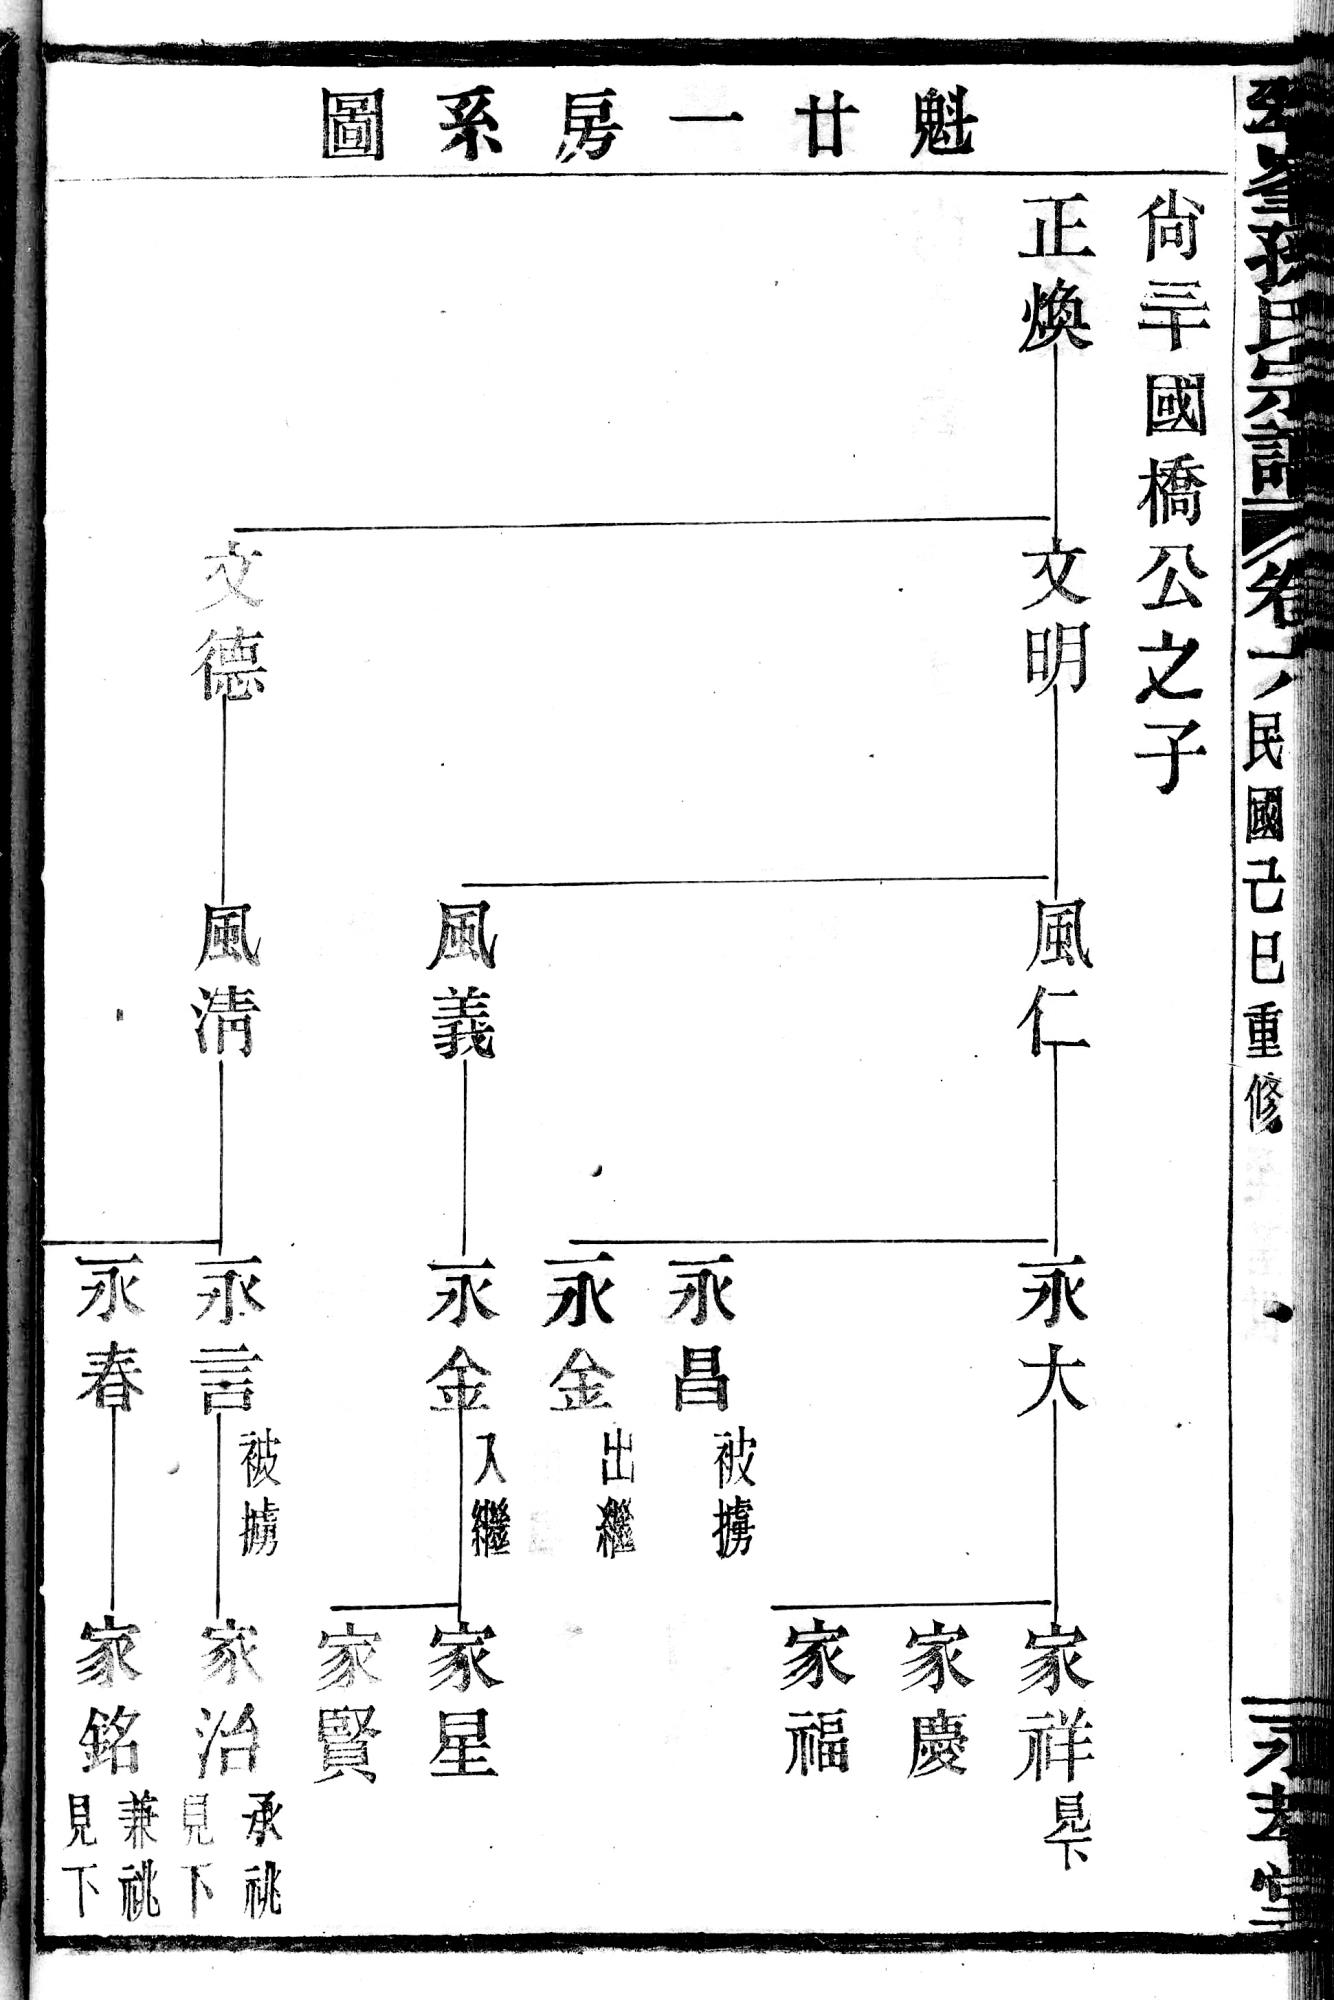 魁廿一房系圖
尙三十國橋公之子
正煥
文明
文德
風仁
風義
風淸
永大
永昌 被擄
永金 出繼
永金 入繼
永言 被擄
永春
家祥 見下
家慶
家福
家星
家賢
家治 承祧 見下
家銘 兼祧 見下
孫氏宗譜
卷
民國己巳重修
永孝堂